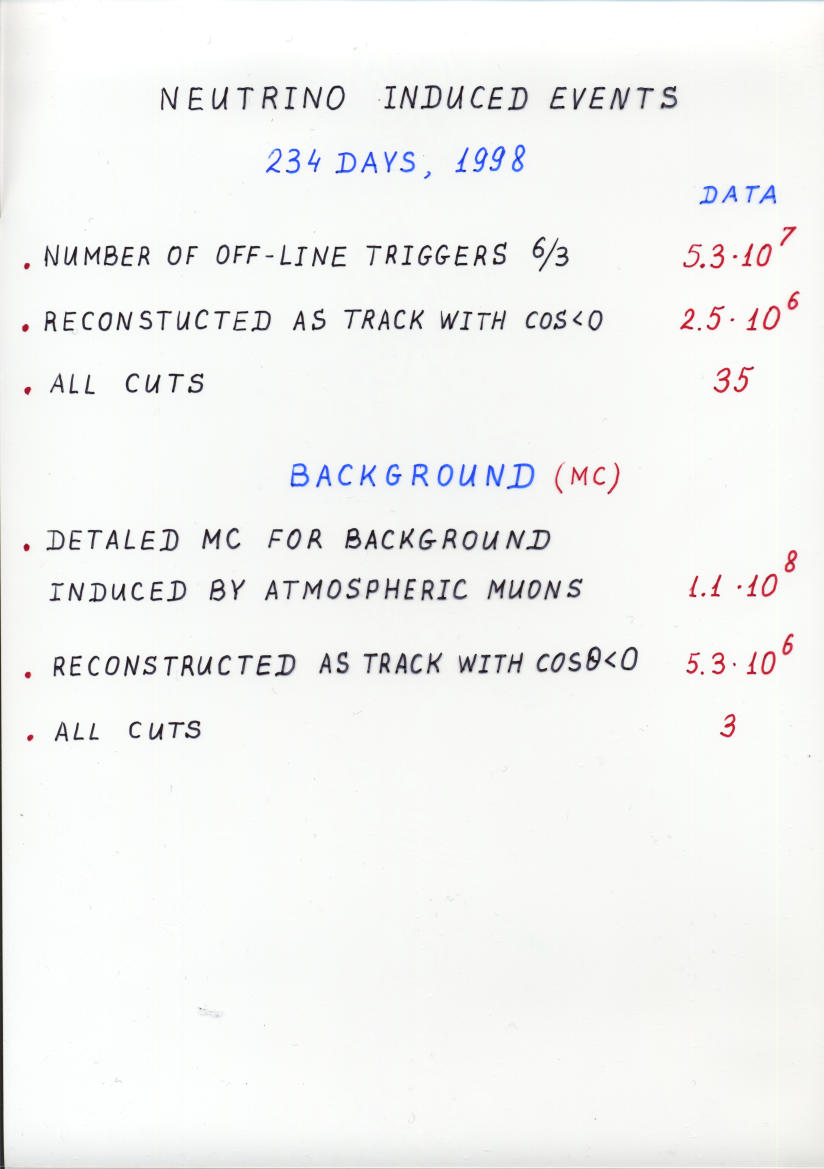 NEUTRINO INDUCED EVENTS
234 DAYS, 1998
DATA
. NUMBER OF OFF-LINE TRIGGERS 6/3 5.3·10⁷
. RECONSTUCTED AS TRACK WITH COS<0 2.5·10⁶
. ALL CUTS 35
BACKGROUND (MC)
. DETALED MC FOR BACKGROUND
INDUCED BY ATMOSPHERIC MUONS 1.1·10⁸
. RECONSTRUCTED AS TRACK WITH COSθ<0 5.3·10⁶
. ALL CUTS 3